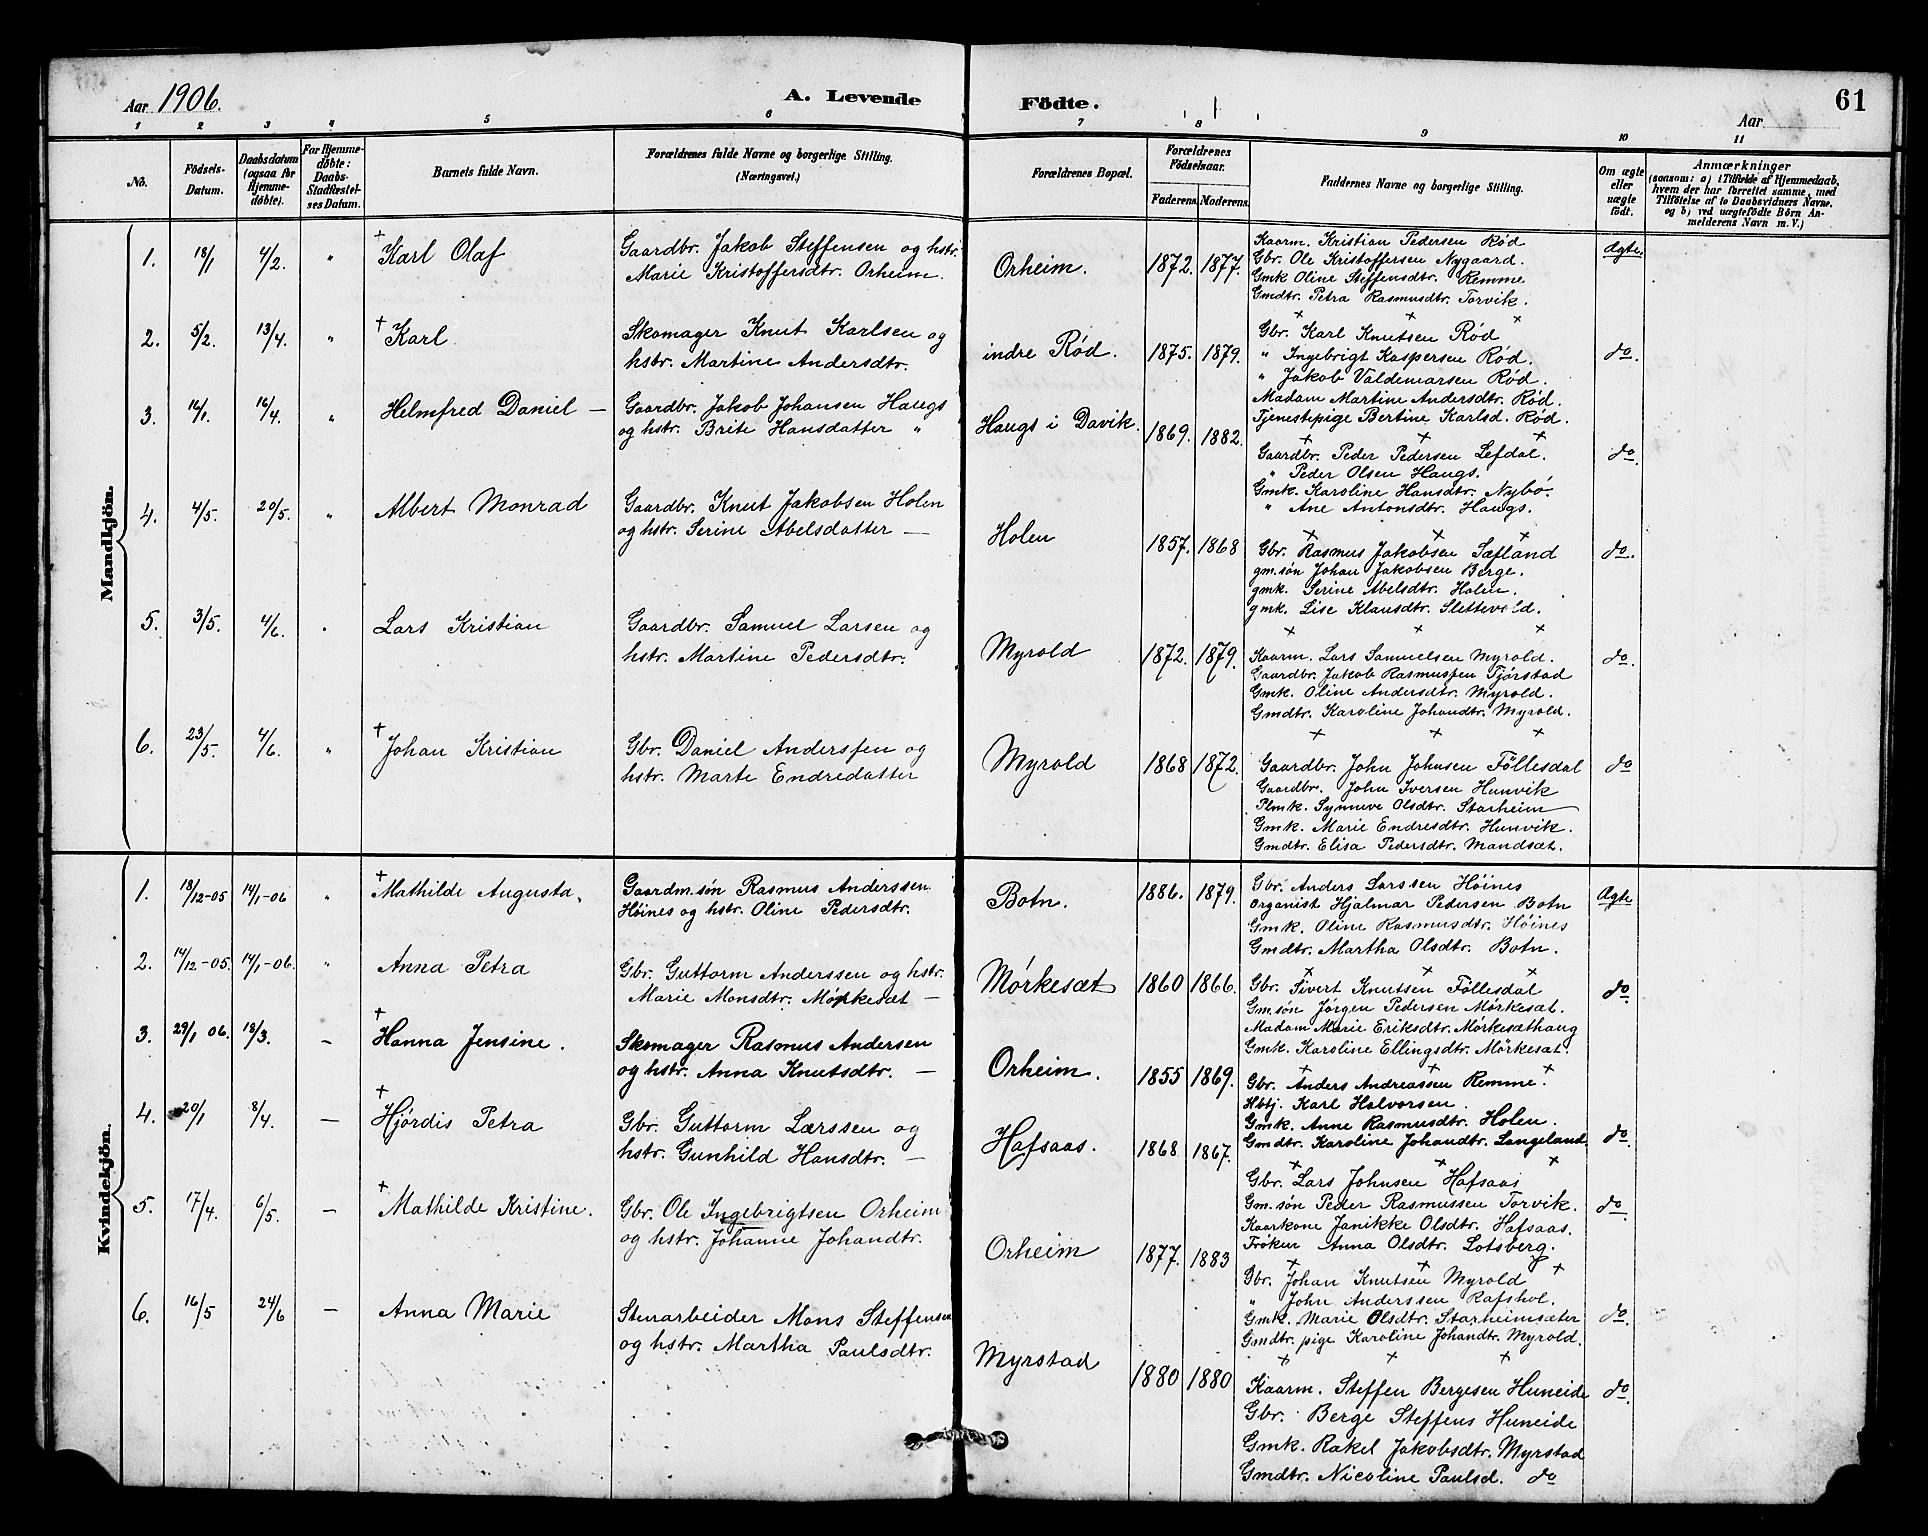 Aar 1906.
A. Levende Födte.
61
Aar
1 2 3 4 5 6 7 8 9 10 11
No.
Födsels-Datum.
Daabsdatum (ogsaa for Hjemme-döbte).
For Hjemme-döbte: Daabs-Stadfæstel-ses Datum.
Barnets fulde Navn.
Forældrenes fulde Navne og borgerlige Stilling. (Næringsvei.)
Forældrenes Bopæl.
Forældrenes Födselsaar.
Faderens. Moderens.
Faddernes Navne og borgerlige Stilling.
Om ægte eller uægte födt.
Anmærkninger
(saasom: a) i Tilfælde af Hjemmedaab,
hvem der har forrettet samme, med
Tilföielse af to Daabsvidners Navne.
og b) ved uægtefödte Börn An-
melderens Navn m. V.)
Mandkjön.
1. 18/1 4/2. " † Karl Olaf
Gaardbr. Jakob Steffensen og hstr.
Marie Kristoffersdtr. Orheim.
Orheim. 1872. 1877.
Kaarm. Kristian Pedersen Rød
Gbr. Ole Kristoffersen Nygaard.
Gmk Oline Steffensdtr. Remme
Gmdtr. Petra Rasmusdtr. Torvik.
ægte.
+ + +
2. 5/2. 13/4. " † Karl
Skomager Knut Karlsen og
hstr. Martine Andersdtr.
indre Rød. 1875. 1879.
Gbr. Karl Knutsen Rød
" Ingebrigt Kaspersen Rød.
" Jakob Valdemarsen Rød.
Madam Martine Andersdtr. Rød.
Tjenestepige Bertine Karlsd. Rød.
do.
+ + +
3. 14/1. 16/4. " Helmfred Daniel —
Gaardbr. Jakob Johansen Haugs
og hstr. Brite Hansdatter "
Haugs i Davik. 1869. 1882.
Gaardbr. Peder Pedersen Lefdal.
" Peder Olsen Haugs.
Gmk. Karoline Hansdtr. Nybö.
" Ane Antonsdtr. Haugs.
do.
+ + +
4. 4/5. 20/5. " Albert Monrad
Gaardbr. Knut Jakobsen Holen
og hstr. Serine Abelsdatter —
Holen 1857. 1868
Gbr. Rasmus Jakobsen Sætland
gm.søn Johan Jakobsen Berge.
gmk. Serine Abelsdtr. Holen.
gmk. Lise Klausdtr. Slettevold.
do.
+ + +
5. 3/5. 4/6. " Lars Kristian
Gaardbr. Samuel Larsen og
hstr. Martine Pedersdtr.
Myrold 1872. 1879.
Kaarm. Lars Samuelsen Myrold.
Gaardbr. Jakob Rasmussen Fjørstad
Gmk. Oline Andersdtr. Myrold.
Gmdtr. Karoline Johandtr. Myrold.
do.
+ + +
6. 23/5. 4/6. " † Johan Kristian
Gbr. Daniel Anderssen og
hstr. Marte Endredatter
Myrold 1868 1872.
Gaardbr. John Johnsen Föllesdal
Gaardbr. John Iversen Hunvik
Plmk. Synneve Olsdtr. Starheim
Gmk. Marie Endresdtr. Hunvik.
Gmdtr. Elisa Pedersdtr. Mandsæt.
do
Kvindekjön.
1. 18/12-05 14/1-06 " † Mathilde Augusta.
Gaardm.søn Rasmus Anderssen
Höines og hstr. Oline Pedersdtr.
Botn. 1886. 1879.
Gbr. Anders Larssen Höines
Organist Hjalmar Pedersen Botn
Gmk. Oline Rasmusdtr. Höines
Gmdtr. Martha Olsdtr. Botn.
Ægte
+ + +
2. 14/12-05. 14/1-06. " Anna Petra
Gbr. Guttorm Anderssen og hstr.
Marie Monsdtr. Mörkesæt —
Mörkesæt 1860 1866.
Gbr. Sivert Knutsen Föllesdal
Gm.søn Jörgen Pedersen Mörkesæt.
Madam Marie Eriksdtr. Mörkesæthaug
Gmk. Karoline Ellingsdtr. Mörkesæt.
do.
+ + +
3. 29/1 06. 18/3. — † Hanna Jensine.
Skomager Rasmus Andersen
og hstr. Anna Knutsdtr. —
Orheim. 1855 1869.
Gbr. Anders Andreassen Remme.
Hbtj. Karl Halvorsen.
Gmk. Anne Rasmusdtr. Holen.
Gmdtr. Karoline Johandtr. Langeland.
do.
+ + +
4. 20/1 8/4. — † Hjördis Petra
Gbr. Guttorm Larssen og
hstr. Gunhild Hansdtr. —
Hafsaas. 1868 1867.
Gbr. Lars Johnsen Hafsaas
Gm.søn Peder Rasmussen Torvik.
Kaarkone Janikke Olsdtr. Hafsaas.
Fröken Anna Olsdtr. Lotsberg.
do.
+ + +
5. 17/4. 6/5. — † Mathilde Kristine.
Gbr. Ole Ingebrigtsen Orheim
og hstr. Johanne Johandtr.
Orheim 1877. 1883
Gbr. Johan Knutsen Myrold
" John Anderssen Rafshol.
Gmk. Marie Olsdtr. Starheimsæter
Gmdtr. pige Karoline Johandtr. Myrold.
do.
+ + +
6. 16/5 24/6 — Anna Marie
Stenarbeider Mons Steffensen
og hstr. Martha Paulsdtr.
Myrstad 1880 1880
Kaarm. Steffen Bergesen Huneide
Gbr. Berge Steffens Huneide
Gmk. Rakel Jakobsdtr. Myrstad
Gmdtr. Nicoline Paulsd. do
do.